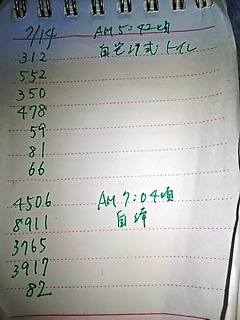 7/14 AM 5:42頃
312 自宅洋式トイレ
552
350
478
59
81
66
4506 AM 7:04頃
8911 自
3765
3917
82